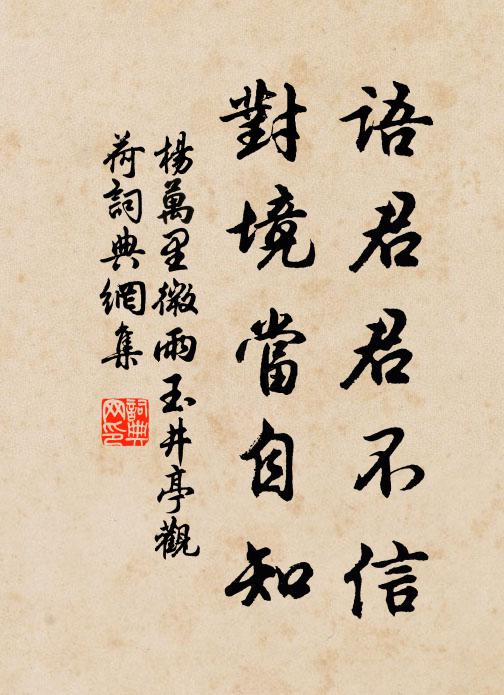 語君君不信
對境當自知
楊萬里微雨玉井亭觀
荷詞典網集
詞典
网印